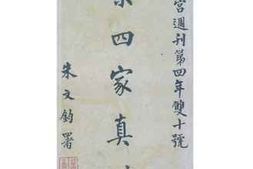 宮週刊第四年雙十號
四家真
朱文鈞署